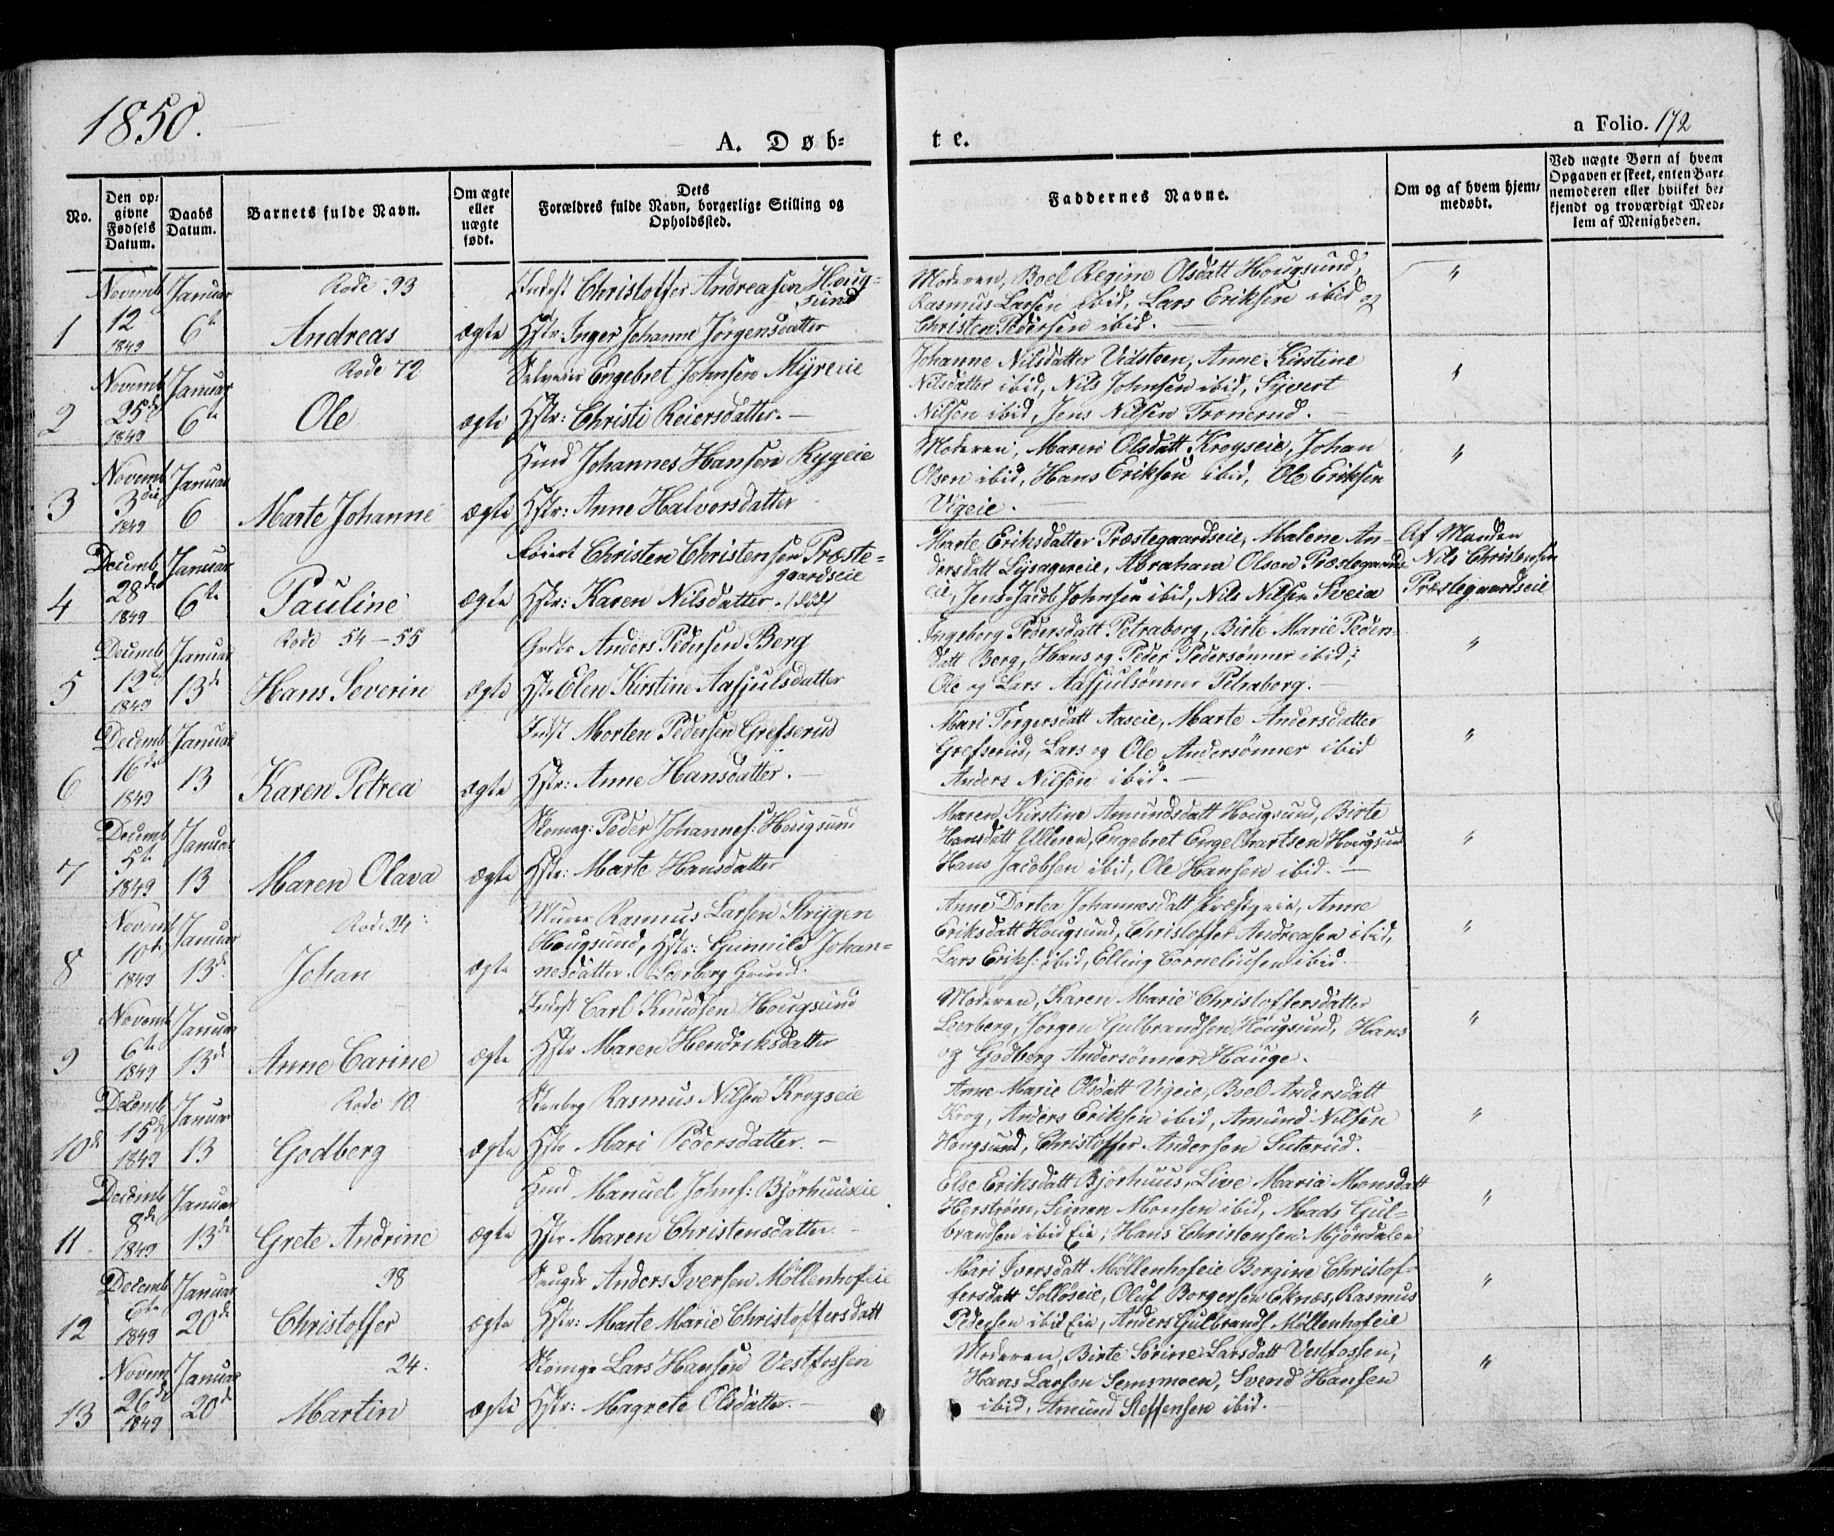 1850.
A. Døb-
te.
a Folio. 172
No.
Den op-
givne
Fødsels
Datum.
Daabs
Datum.
Barnets fulde Navn.
Om ægte
eller
uægte
født.
Dets
Forældres fulde Navn, borgerlige Stilling og
Opholdssted.
Faddernes Navne.
Om og af hvem hjem-
medøbt.
Ved uægte Børn af hvem
Opgaven er skeet, enten Bar-
nemoderen eller hvilket be-
kjendt og troværdigt Med-
lem af Menigheden.
1
Novemb
12
1849
Januar
6te
Rode 93
Andreas
ægte
Indest Christoffer Andreasen Houg-
sund
Hstr: Inger Johanne Jørgensdatter
Moderen, Boel Regine Olsdatt Hougsund,
Rasmus Larsen ibid, Lars Eriksen ibid og
Christen Pedersen ibid. —
"
2
Novemb
25de
1849
Januar
6te
Rode 72
Ole
ægte
Selveier Engebret Johnsen Myreeie
Hstr: Christi Reiersdatter. —
Johanne Nilsdatter Vidsteen, Anne Kirstine
Nilsdatter ibid, Nils Johnsen ibid, Syvert
Nilsen ibid, Jens Nilsen Tromerud. —
"
3
Novemb
3die
1849
Januar
6
Marte Johanne
ægte
Hmd Johannes Hansen Rygeie
Hstr: Anne Halvorsdatter
Moderen, Maren Olsdatt Krogseie, Johan
Olsen ibid, Hans Eriksen ibid, Ole Eriksen
Vigeie.
"
4
Decemb
28de
1849
Januar
6te
Pauline
ægte
Christen Christensen Præste-
gaardseie
Hstr: Karen Nilsdatter.
Marte Eriksdatter Præstegaardseie, Malene An-
dersdatt Lysagereie, Abraham Olsen Præstegaards
eie, Jens Jacob Johnsen ibid, Nils Nilsen Sveia
Af Manden
Nils Christensen
Præstegaardseie
5
Decemb
12te
1849
Januar
13de
Rode 54-55
Hans Severin
ægte
Anders Pedersen Berg
Hstr Elen Kirstine Aasjulsdatter
Ingeborg Pedersdatt Petraborg, Birte Marie Peders-
datt Berg, Hans og Peder Pedersønner ibid,
Ole og Lars Aasjulsønner Petraborg. —
"
6
Decemb
16de
1849
Januar
13
Karen Petrea
ægte
Indst Morten Pedersen Grefserud
Hstr: Anne Hansdatter. —
Mari Torgersdatt Aaseie, Marte Andersdatter
Grefserud, Lars og Ole Andersønner ibid
Anders Nilsen ibid. —
"
7
Decemb
5te
1849
Januar
13
Maren Olava
ægte
Skomag: Peder Johannes: Hougsund
Hstr: Marte Hansdatter
Maren Kirstine Amundsdatt Hougsund, Birte
Hansdatt Ulleren, Engebret Engelhartsen Hougsund
Hans Jacobsen ibid, Ole Hansen ibid. —
"
8
Novemb
10de
1849
Januar
13de
Rode 24:
Johan
ægte
Murer Rasmus Larsen Strygen
Hougsund, Hstr: Gunnild Johan-
nesdatter Leerberg Grund.
Anne Dortea Johannesdatt Præstgeie, Anne
Eriksdatt Hougsund, Christoffer Andreasen ibid,
Lars Eriks: ibid, Elling Corneliusen ibid.
"
9
Novemb
6te
1849
Januar
13de
Anne Carine
ægte
Indst Carl Knudsen Hougsund
Hstr Maren Hendriksdatter
Moderen, Karen Marie Christoffersdatter
Leerberg, Jørgen Gulbrandsen Hougsund, Hans
og Godberg Andersønner Hauge. —
"
10de
Decemb
15de
1849
Januar
13
Rode 10.
Godberg
ægte
Rasmus Nilsen Krogseie
Hstr Mari Pedersdatter —
Anne Marie Olsdatt Vigeie, Boel Andersdatt
Krog, Anders Eriksen ibid, Amund Nilsen
Hougsund, Christoffer Andersen Suterud.
"
11.
Decemb
8de
1849
Januar
13de
Grete Andrine
ægte
Hmd Manuel Johns: Bjørhuuseie
Hstr Maren Christensdatter —
Else Eriksdatt Bjørhuus, Live Maria Monsdatt
Herstrøm, Simen Monsen ibid, Mads Gul-
brandsen ibid Eie, Hans Christensen Mjøndalen
"
12
Decemb
6te
1849
Januar
20de
98
Christoffer
ægte
Anders Iversen Møllenhofeie
Hstr: Marte Marie Christoffersdatt
Mari Iversdatt Møllenhofeie Borgine Christof-
fersdatt Solløseie, Oluf Borgersen Eknæs, Rasmus
Pedersen ibid Eie, Anders Gulbrands Møllenhofeie
"
13
Novemb
26de
1849
Januar
20de
24.
Martin
ægte
Lars Hansen Vestfossen
Hstr: Magrete Olsdatter. —
Moderen, Birte Sørine Larsdatt Vestfossen,
Hans Larsen Semsmoen, Svend Hansen
ibid, Amund Steffensen ibid. —
"